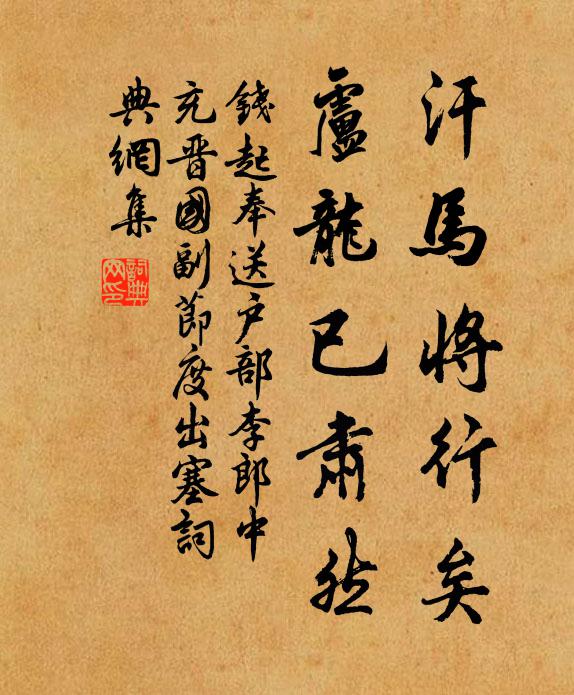 汗馬將行矣
盧龍已肅然
錢起奉送戶部李郎中
充晉國副節度出塞詞
典網集
詞典網印